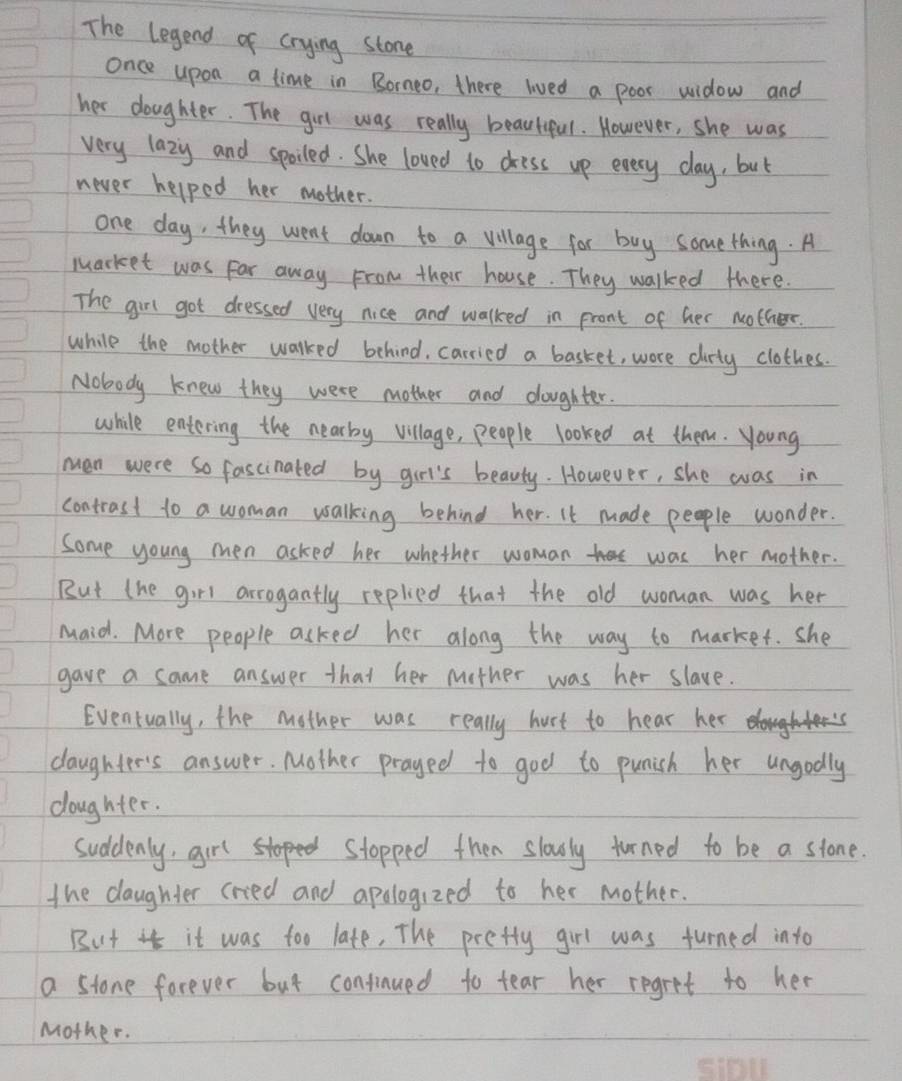 The Legend of Crying Stone
Once upon a time in Borneo, there lived a poor widow and
her doughter. The girl was really beautiful. However, She was
very lazy and spoiled. She loved to dress up every day, but
never helped her mother.
One day, they went down to a village for buy something. A
market was far away from their house. They walked there.
The girl got dressed very nice and walked in front of her mother.
while the mother walked behind, carried a basket, wore dirty clothes.
Nobody knew they were mother and doughter.
while entering the nearby village, people looked at them. Young
men were so fascinated by girl's beauty. However, she was in
contrast to a woman walking behind her. It made people wonder.
Some young men asked her whether woman was her mother.
But the girl arrogantly replied that the old woman was her
maid. More people asked her along the way to market. She
gave a same answer that her mother was her slave.
Eventually, the mother was really hurt to hear her doughter's
daughter's answer. Mother prayed to god to punish her ungodly
doughter.
Suddenly, girl stoped stopped then slowly turned to be a stone.
the daughter cried and apologized to her mother.
But it was too late, The pretty girl was turned into
a stone forever but continued to tear her regret to her
mother.
SiDU